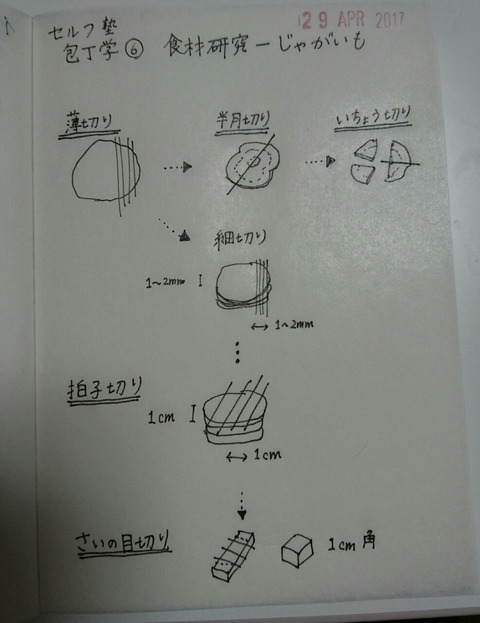 29 APR 2017
セルフ塾
包丁学⑥ 食材研究ーじゃがいも
薄切り
半月切り
いちょう切り
細切り
1〜2mm
1〜2mm
拍子切り
1cm
1cm
さいの目切り
1cm角